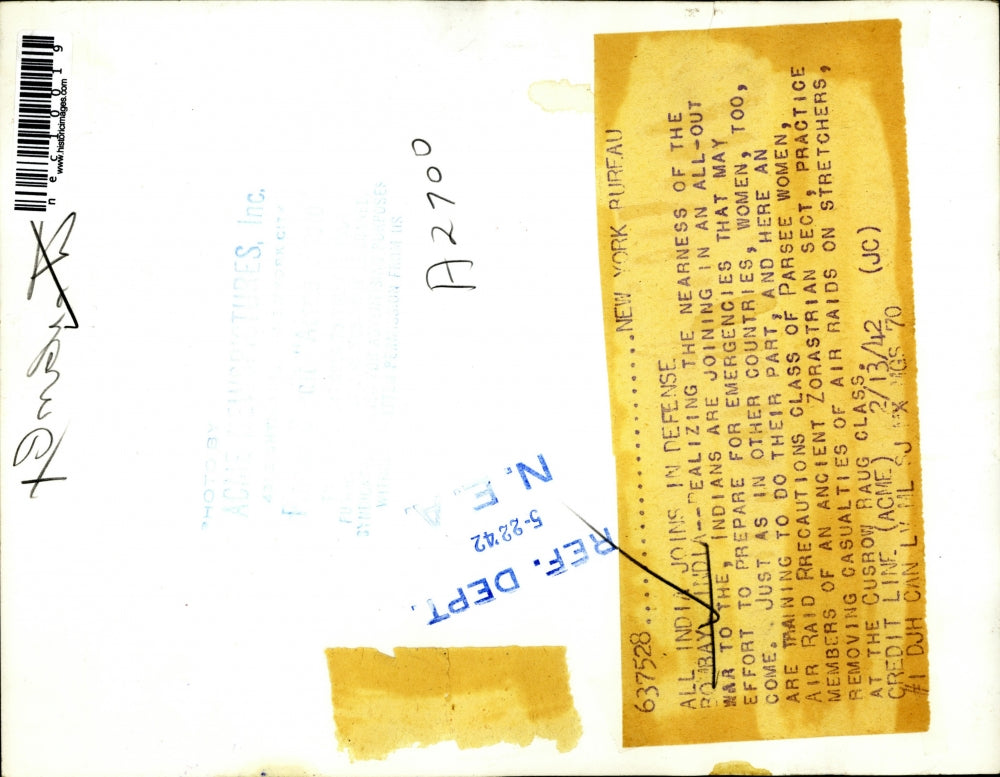 637528...........................NEW YORK BUREAU
ALL INDIA JOINS IN DEFENSE
BOMBAY, INDIA--REALIZING THE NEARNESS OF THE
WAR TO THE, INDIANS ARE JOINING IN AN ALL-OUT
EFFORT TO PREPARE FOR EMERGENCIES THAT MAY
COME. JUST AS IN OTHER COUNTRIES, WOMEN, TOO,
ARE TRAINING TO DO THEIR PART, AND HERE AN
AIR RAID RRECAUTIONS CLASS OF PARSEE WOMEN,
MEMBERS OF AN ANCIENT ZORASTRIAN SECT, PRACTICE
REMOVING CASUALTIES OF AIR RAIDS ON STRETCHERS,
AT THE CUSROW RAUG CLASS.
CREDIT LINE (ACME) 2/13/42 (JC)
#1 DJH CAN LV ML SJ MX MGS 70
A2700
REF. DEPT.
5-22'42
N. E.
PHOTO BY
ACME NEWSPICTURES, Inc.
nec10019
www.historicimages.com